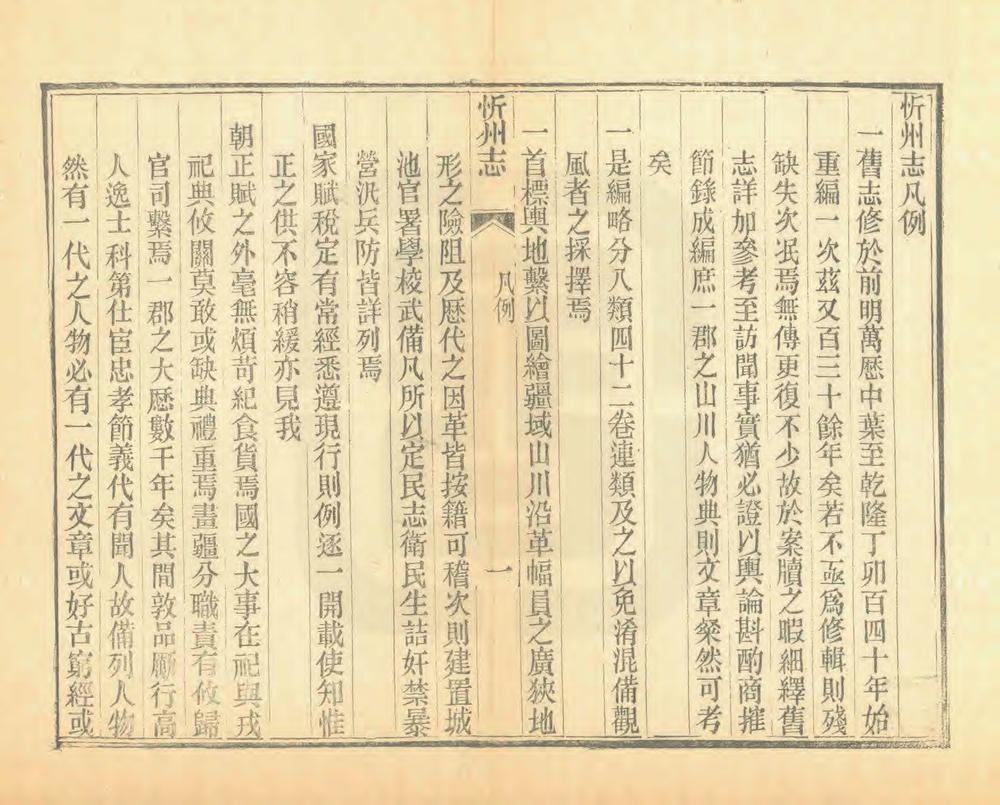 忻州志凡例
一舊志修於前明萬歷中葉至乾隆丁卯百四十年始
重編一次茲又百三十餘年矣若不亟爲修輯則殘
缺失次冺焉無傳更復不少故於案牘之暇細繹舊
志詳加參考至訪聞事實猶必證以輿論斟酌商摧
節錄成編庶一郡之山川人物典則文章粲然可考
矣
一是編略分八類四十二卷連類及之以免淆混備觀
風者之採擇焉
一首標輿地繫以圖繪疆域山川沿革幅員之廣狹地
忻州志
凡例
一
形之險阻及歷代之因革皆按籍可稽次則建置城
池官署學校武備凡所以定民志衛民生詰奸禁暴
營汛兵防皆詳列焉
國家賦稅定有常經悉遵現行則例逐一開載使知惟
正之供不容稍緩亦見我
朝正賦之外毫無煩苛紀食貨焉國之大事在祀與戎
祀典攸關莫敢或缺典禮重焉畫疆分職責有攸歸
官司繫焉一郡之大歷數千年矣其間敦品厲行高
人逸士科第仕宦忠孝節義代有聞人故備列人物
然有一代之人物必有一代之文章或好古窮經或